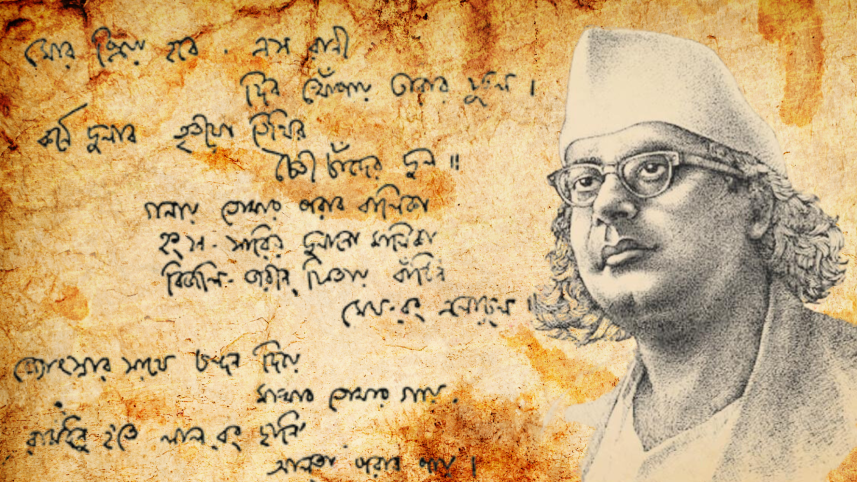 মোর প্রিয়া হবে . এস রানী
দিব খোঁপায় তারার ফুল ।
কর্ণে দুলাব তৃতীয়া তিথির
চৈতী চাঁদের দুল ॥
গলায় তোমার পরাব বালিকা
হংস - সারির দুলানো মালিকা
বিজলি - জরীন ফিতায় বাঁধিব
মেঘ-রং এলোচুল ॥
জ্যোৎস্নার সাথে চন্দন দিয়ে
মাখাব তোমার গায় .
রামধনু হতে লাল রং ছানি'
আলতা পরাব পায় ।